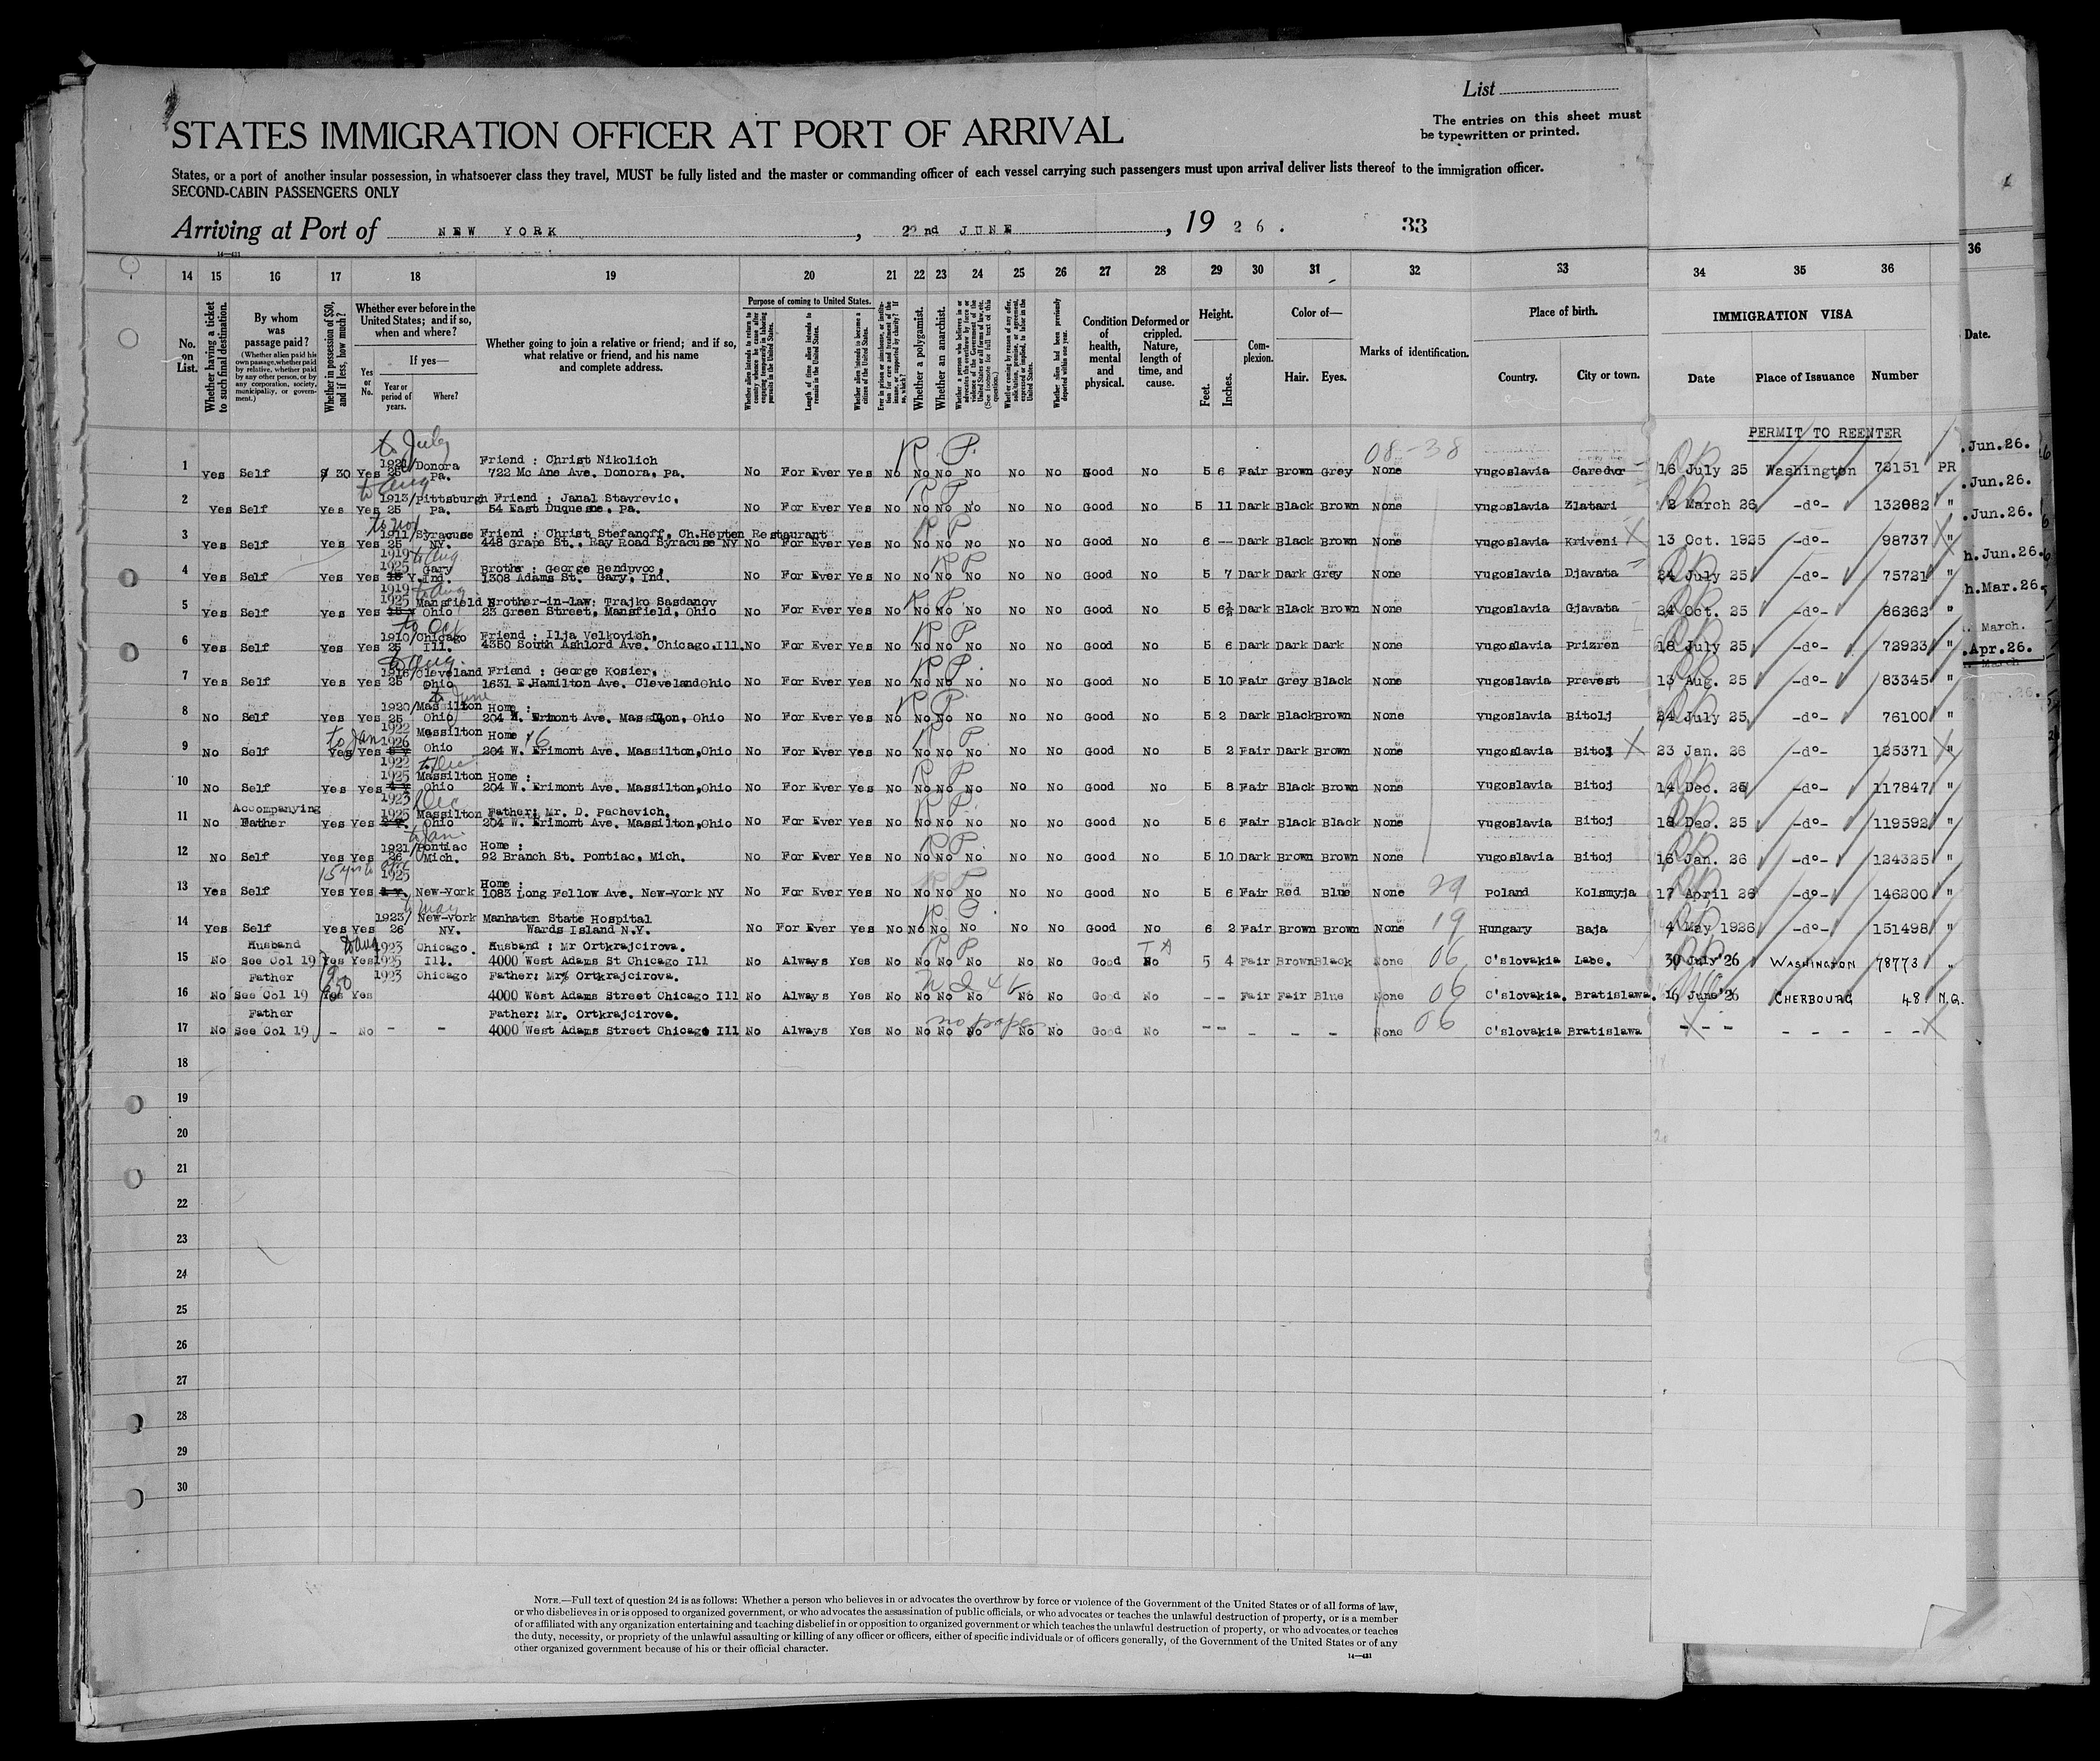 List
The entries on this sheet must
be typewritten or printed.
STATES IMMIGRATION OFFICER AT PORT OF ARRIVAL
States, or a port of another insular possession, in whatsoever class they travel, MUST be fully listed and the master or commanding officer of each vessel carrying such passengers must upon arrival deliver lists thereof to the immigration officer.
SECOND-CABIN PASSENGERS ONLY
Arriving at Port of NEW YORK, 22nd JUNE, 1926. 33
14 15 16 17 18 19 20 21 22 23 24 25 26 27 28 29 30 31 32 33 34 35 36
No. on List.
Whether having a ticket to such final destination.
By whom was passage paid?
(Whether alien paid his own passage, whether paid by relative, whether paid by any other person, or by any corporation, society, municipality, or government.)
Whether in possession of $50, and if less, how much?
Whether ever before in the United States; and if so, when and where?
Yes or No.
If yes—
Year or period of years.
Where?
Whether going to join a relative or friend; and if so, what relative or friend, and his name and complete address.
Purpose of coming to United States.
Length of time alien intends to remain in the United States.
Whether alien intends to become a citizen of the United States.
Whether a polygamist.
Whether an anarchist.
Condition of health, mental and physical.
Deformed or crippled. Nature, length of time, and cause.
Height.
Feet.
Inches.
Complexion.
Color of—
Hair.
Eyes.
Marks of identification.
Place of birth.
Country.
City or town.
IMMIGRATION VISA
Date
Place of Issuance
Number
36
Date.
PERMIT TO REENTER
08-38
to July
1 Yes Self $ 30 Yes 1921/25 Donora Pa. Friend : Christ Nikolich 722 Mc Ane Ave. Donora, Pa. No For Ever Yes No No No No No No Good No 5 6 Fair Brown Grey None Yugoslavia Caredvor 16 July 25 Washington 73151 PR
to Aug
2 Yes Self Yes Yes 1913/25 Pittsburgh Pa. Friend : Janal Stavrevic, 54 East Duquesne, Pa. No For Ever Yes No No No No No No Good No 5 11 Dark Black Brown None Yugoslavia Zlatari 2 March 26 -do- 132982 "
to Nov
3 Yes Self Yes Yes 1911/25 Syracuse NY. Friend : Christ Stefanoff, Ch.Hepten Restaurant 448 Grape St., Ray Road Syracuse NY No For Ever Yes No No No No No No Good No 6 -- Dark Black Brown None Yugoslavia Kriveni 13 Oct. 1925 -do- 98737 "
to Aug
4 Yes Self Yes Yes 1919 1925 Gary Ind. Brothr : George Bendpvoc, 1308 Adams St. Gary, Ind. No For Ever Yes No No No No No No Good No 5 7 Dark Dark Grey None Yugoslavia Djavata 24 July 25 -do- 75721 "
to Aug
5 Yes Self Yes Yes 1919 1925 Mansfield Ohio Brother-in-law: Trajko Sasdanov 23 Green Street, Mansfield, Ohio No For Ever Yes No No No No No No Good No 5 6½ Dark Black Brown None Yugoslavia Gjavata 24 Oct. 25 -do- 86262 "
to Oct
6 Yes Self Yes Yes 1910/25 Chicago Ill. Friend : Ilja Velkovich, 4350 South Ashlord Ave. Chicago.Ill. No For Ever Yes No No No No No No Good No 5 6 Dark Dark Dark None Yugoslavia Prizren 18 July 25 -do- 72923 "
to Aug.
7 Yes Self Yes Yes 1916/25 Cleveland Ohio Friend : George Kosier, 1631 E.Hamilton Ave. Cleveland Ohio No For Ever Yes No No No No No No Good No 5 10 Fair Grey Black None Yugoslavia Prevest 13 Aug. 25 -do- 83345 "
to June
8 No Self Yes Yes 1920/25 Massilton Ohio Home : 204 W. Erimont Ave. Massilon, Ohio No For Ever Yes No No No No No No Good No 5 2 Dark Black Brown None Yugoslavia Bitolj 24 July 25 -do- 76100 "
to Jan
9 No Self Yes Yes 1922 1926 Massilton Ohio Home 204 W. Erimont Ave. Massilton,Ohio No For Ever Yes No No No No No No Good No 5 2 Fair Dark Brown None Yugoslavia Bitoj 23 Jan. 26 -do- 125371 "
to Dec
10 No Self Yes Yes 1922 1925 Massilton Ohio Home : 204 W. Erimont Ave. Massilton,Ohio No For Ever Yes No No No No No No Good No 5 8 Fair Black Brown None Yugoslavia Bitoj 14 Dec. 25 -do- 117847 "
Dec
11 No Accompanying Father Yes Yes 1923 1925 Massilton Ohio Father: Mr. D. Pachevich, 204 W. Erimont Ave. Massilton,Ohio No For Ever Yes No No No No No No Good No 5 6 Fair Black Black None Yugoslavia Bitoj 18 Dec. 25 -do- 119592 "
to Jan.
12 No Self Yes Yes 1921/26 Pontiac Mich. Home : 92 Branch St. Pontiac, Mich. No For Ever Yes No No No No No No Good No 5 10 Dark Brown Brown None Yugoslavia Bitoj 16 Jan. 26 -do- 124325 "
13 Yes Self Yes Yes 1925 New-York Home : 1083 Long Fellow Ave. New-York NY No For Ever Yes No No No No No No Good No 5 6 Fair Red Blue None 29 Poland Kolsmyja 17 April 26 -do- 146200 "
to May
14 Yes Self Yes Yes 1923/26 New-York NY. Manhaten State Hospital Wards Island N.Y. No For Ever Yes No No No No No No Good No 6 2 Fair Brown Brown None 19 Hungary Baja 4 May 1926 -do- 151498 "
to Aug
15 No Husband See Col 19 Yes Yes 1923 1925 Chicago Ill. Husband : Mr Ortkrajcirova. 4000 West Adams St Chicago Ill No Always Yes No No No No No No Good No 5 4 Fair Brown Black None 06 C'slovakia Labe. 30 July'26 WASHINGTON 78773 "
16 No Father See Col 19 Yes Yes 1923 Chicago Father: Mr. Ortkrajcirova. 4000 West Adams Street Chicago Ill No Always Yes No No No No No No Good No -- Fair Fair Blue None 06 C'slovakia. Bratislawa. 16 June'26 CHERBOURG 48 N.Q.
no paper
17 No Father See Col 19 - No - - Father: Mr. Ortkrajcirova. 4000 West Adams Street Chicago Ill No Always Yes No No No No No No Good No -- - - - None 06 C'slovakia Bratislawa - - - - - - - -
18
19
20
21
22
23
24
25
26
27
28
29
30
.Jun.26.
.Jun.26.
.Jun.26.
h.Jun.26.
h.Mar.26.
March.
.Apr.26.
NOTE.—Full text of question 24 is as follows: Whether a person who believes in or advocates the overthrow by force or violence of the Government of the United States or of all forms of law,
or who disbelieves in or is opposed to organized government, or who advocates the assassination of public officials, or who advocates or teaches the unlawful destruction of property, or is a member
of or affiliated with any organization entertaining and teaching disbelief in or opposition to organized government or which teaches the unlawful destruction of property, or who advocates or teaches
the duty, necessity, or propriety of the unlawful assaulting or killing of any officer or officers, either of specific individuals or of officers generally, of the Government of the United States or of any
other organized government because of his or their official character.
14—431